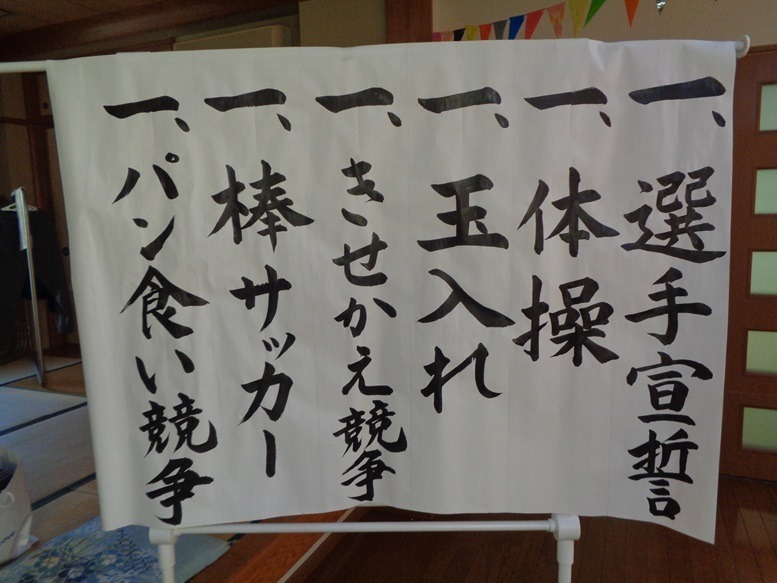 一、選手宣誓
一、体操
一、玉入れ
一、きせかえ競争
一、棒サッカー
一、パン食い競争